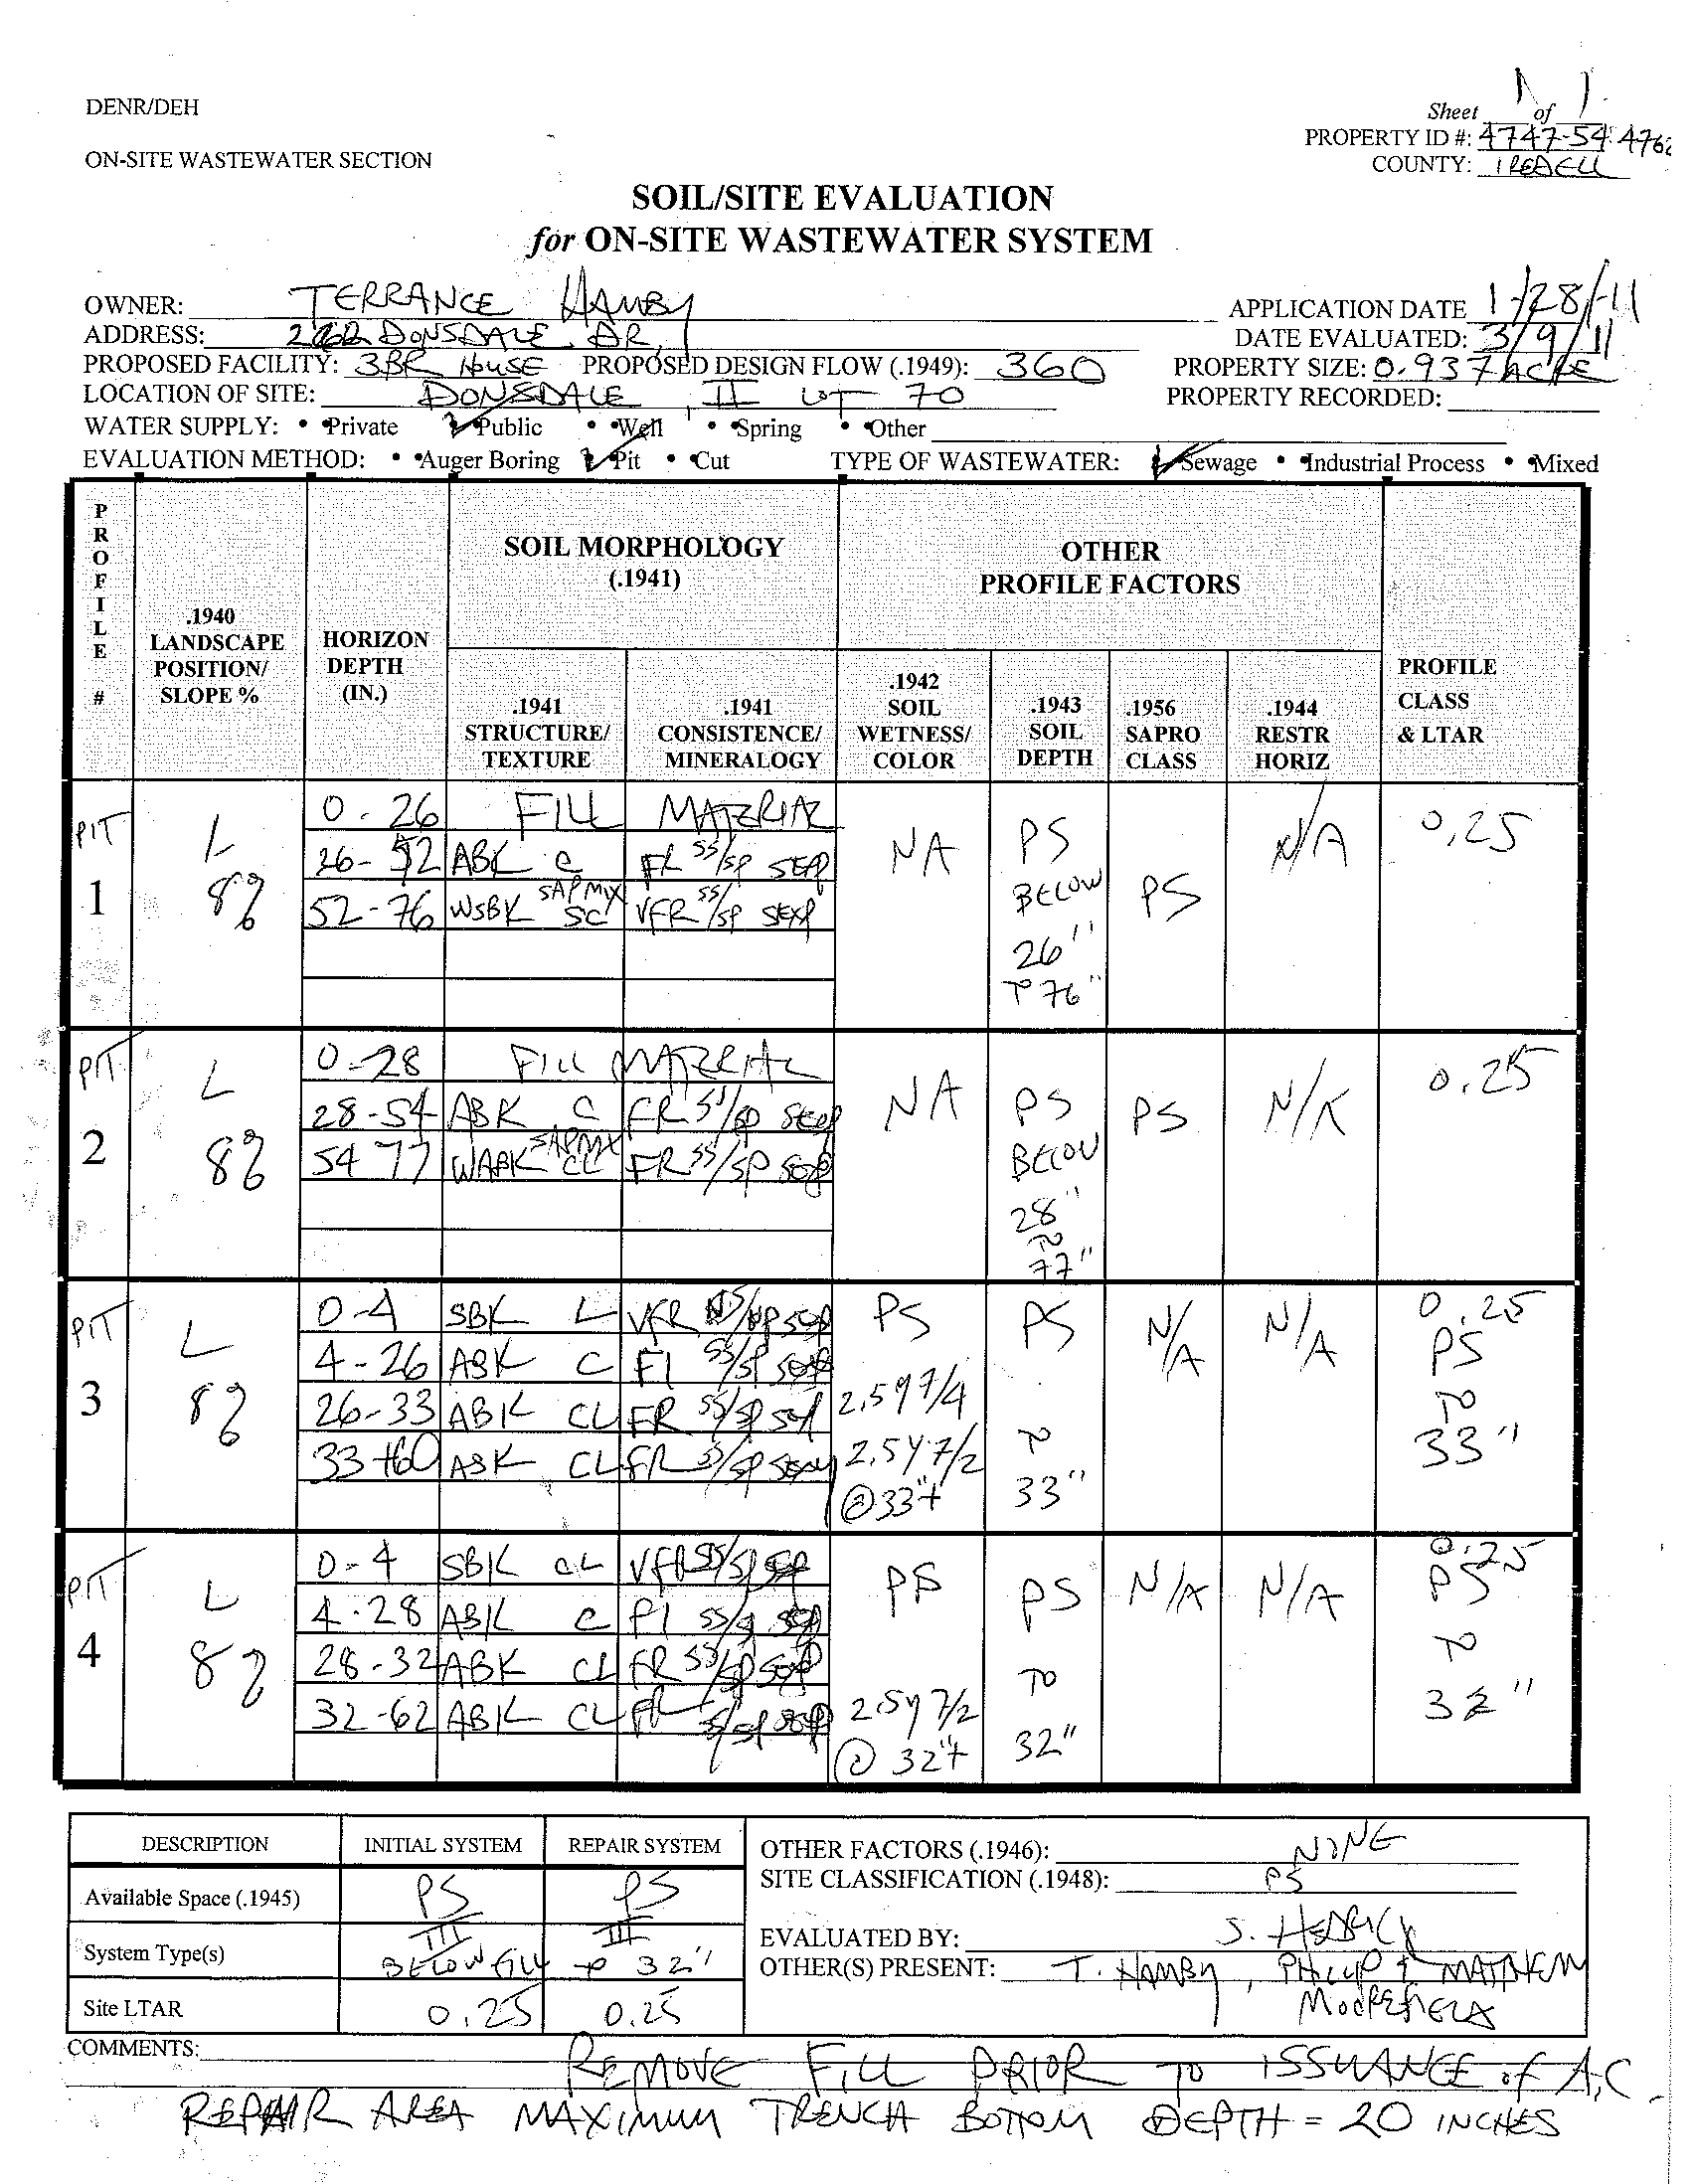 DENR/DEH
Sheet 1 of 1
PROPERTY ID #: 4747-54-4762
ON-SITE WASTEWATER SECTION
COUNTY: IREDELL
SOIL/SITE EVALUATION
for ON-SITE WASTEWATER SYSTEM
OWNER: TERRANCE HAMBY APPLICATION DATE 1/28/11
ADDRESS: DONSDALE DR. DATE EVALUATED: 3/9/11
PROPOSED FACILITY: 3BR HOUSE PROPOSED DESIGN FLOW (.1949): 360 PROPERTY SIZE: 0.937 ACRE
LOCATION OF SITE: DONSDALE, II LOT 70 PROPERTY RECORDED:
WATER SUPPLY: Private Public Well Spring Other
EVALUATION METHOD: Auger Boring Pit Cut TYPE OF WASTEWATER: Sewage Industrial Process Mixed
PROFILE #
.1940 LANDSCAPE POSITION/ SLOPE %
HORIZON DEPTH (IN.)
SOIL MORPHOLOGY (.1941)
OTHER PROFILE FACTORS
.1941 STRUCTURE/ TEXTURE
.1941 CONSISTENCE/ MINERALOGY
.1942 SOIL WETNESS/ COLOR
.1943 SOIL DEPTH
.1956 SAPRO CLASS
.1944 RESTR HORIZ
PROFILE CLASS & LTAR
PIT 1 L 8%
0-26 FILL MATERIAL
26-52 ABK C FR SS/SP SEXP
52-76 WSBK SAPMIX SC VFR SS/SP SEXP
NA
PS BELOW 26" TO 76"
PS
N/A
0.25
PIT 2 L 8%
0-28 FILL MATERIAL
28-54 ABK C FR SS/SP SEXP
54-77 WABK SAPMIX CL FR SS/SP SEXP
NA
PS BELOW 28" TO 77"
PS
N/A
0.25
PIT 3 L 8%
0-4 SBK L VFR NS/NP SEXP
4-26 ABK C FI SS/SP SEXP
26-33 ABK CL FR SS/SP SEXP
33-60 ABK CL FR SS/SP SEXP
PS 2.5Y 7/4
2.5Y 7/2 @ 33"+
PS TO 33"
N/A
N/A
0.25 PS TO 33"
PIT 4 L 8%
0-4 SBK CL VFR SS/SP SEXP
4-28 ABK C FI SS/SP SEXP
28-32 ABK CL FR SS/SP SEXP
32-62 ABK CL FR SS/SP SEXP
PS
2.5Y 7/2 @ 32"+
PS TO 32"
N/A
N/A
0.25 PS TO 32"
DESCRIPTION INITIAL SYSTEM REPAIR SYSTEM
Available Space (.1945) PS PS
System Type(s) III BELOW FILL III TO 32"
Site LTAR 0.25 0.25
OTHER FACTORS (.1946): NONE
SITE CLASSIFICATION (.1948): PS
EVALUATED BY: S. HEDRICK
OTHER(S) PRESENT: T. HAMBY, PHILLIP & MATTHEW
COMMENTS: REMOVE FILL PRIOR TO ISSUANCE of A.C.
REPAIR AREA MAXIMUM TRENCH BOTTOM DEPTH = 20 INCHES